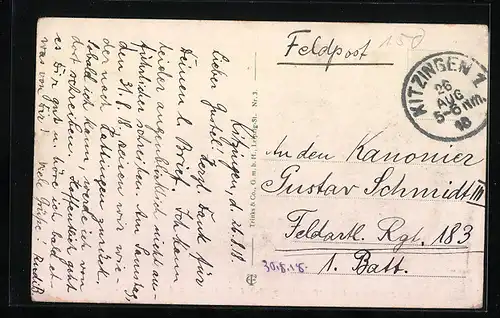 Feldpost
150
KITZINGEN 1
26
AUG
5-6 Nm.
18
An den Kanonier
Gustav Schmidt III
Feldartl. Rgt. 183
1. Batt.
30.8.18.
Trinks & Co., G.m.b.H., Leipzig
Kitzingen, d. 26.8.18.
Lieber Gustel! Herzl. Dank für
Deinen l. Brief. Ich kann
leider augenblicklich nicht aus-
führlicher schreiben. Am Samstag,
den 31.8.18 reisen wir wie-
der nach zurück.
Sobald ich kann, werde ich von
dort schreiben. Hoffentlich geht
es Dir gut u. höre ich bald et-
was von Dir! Viele Grüße!